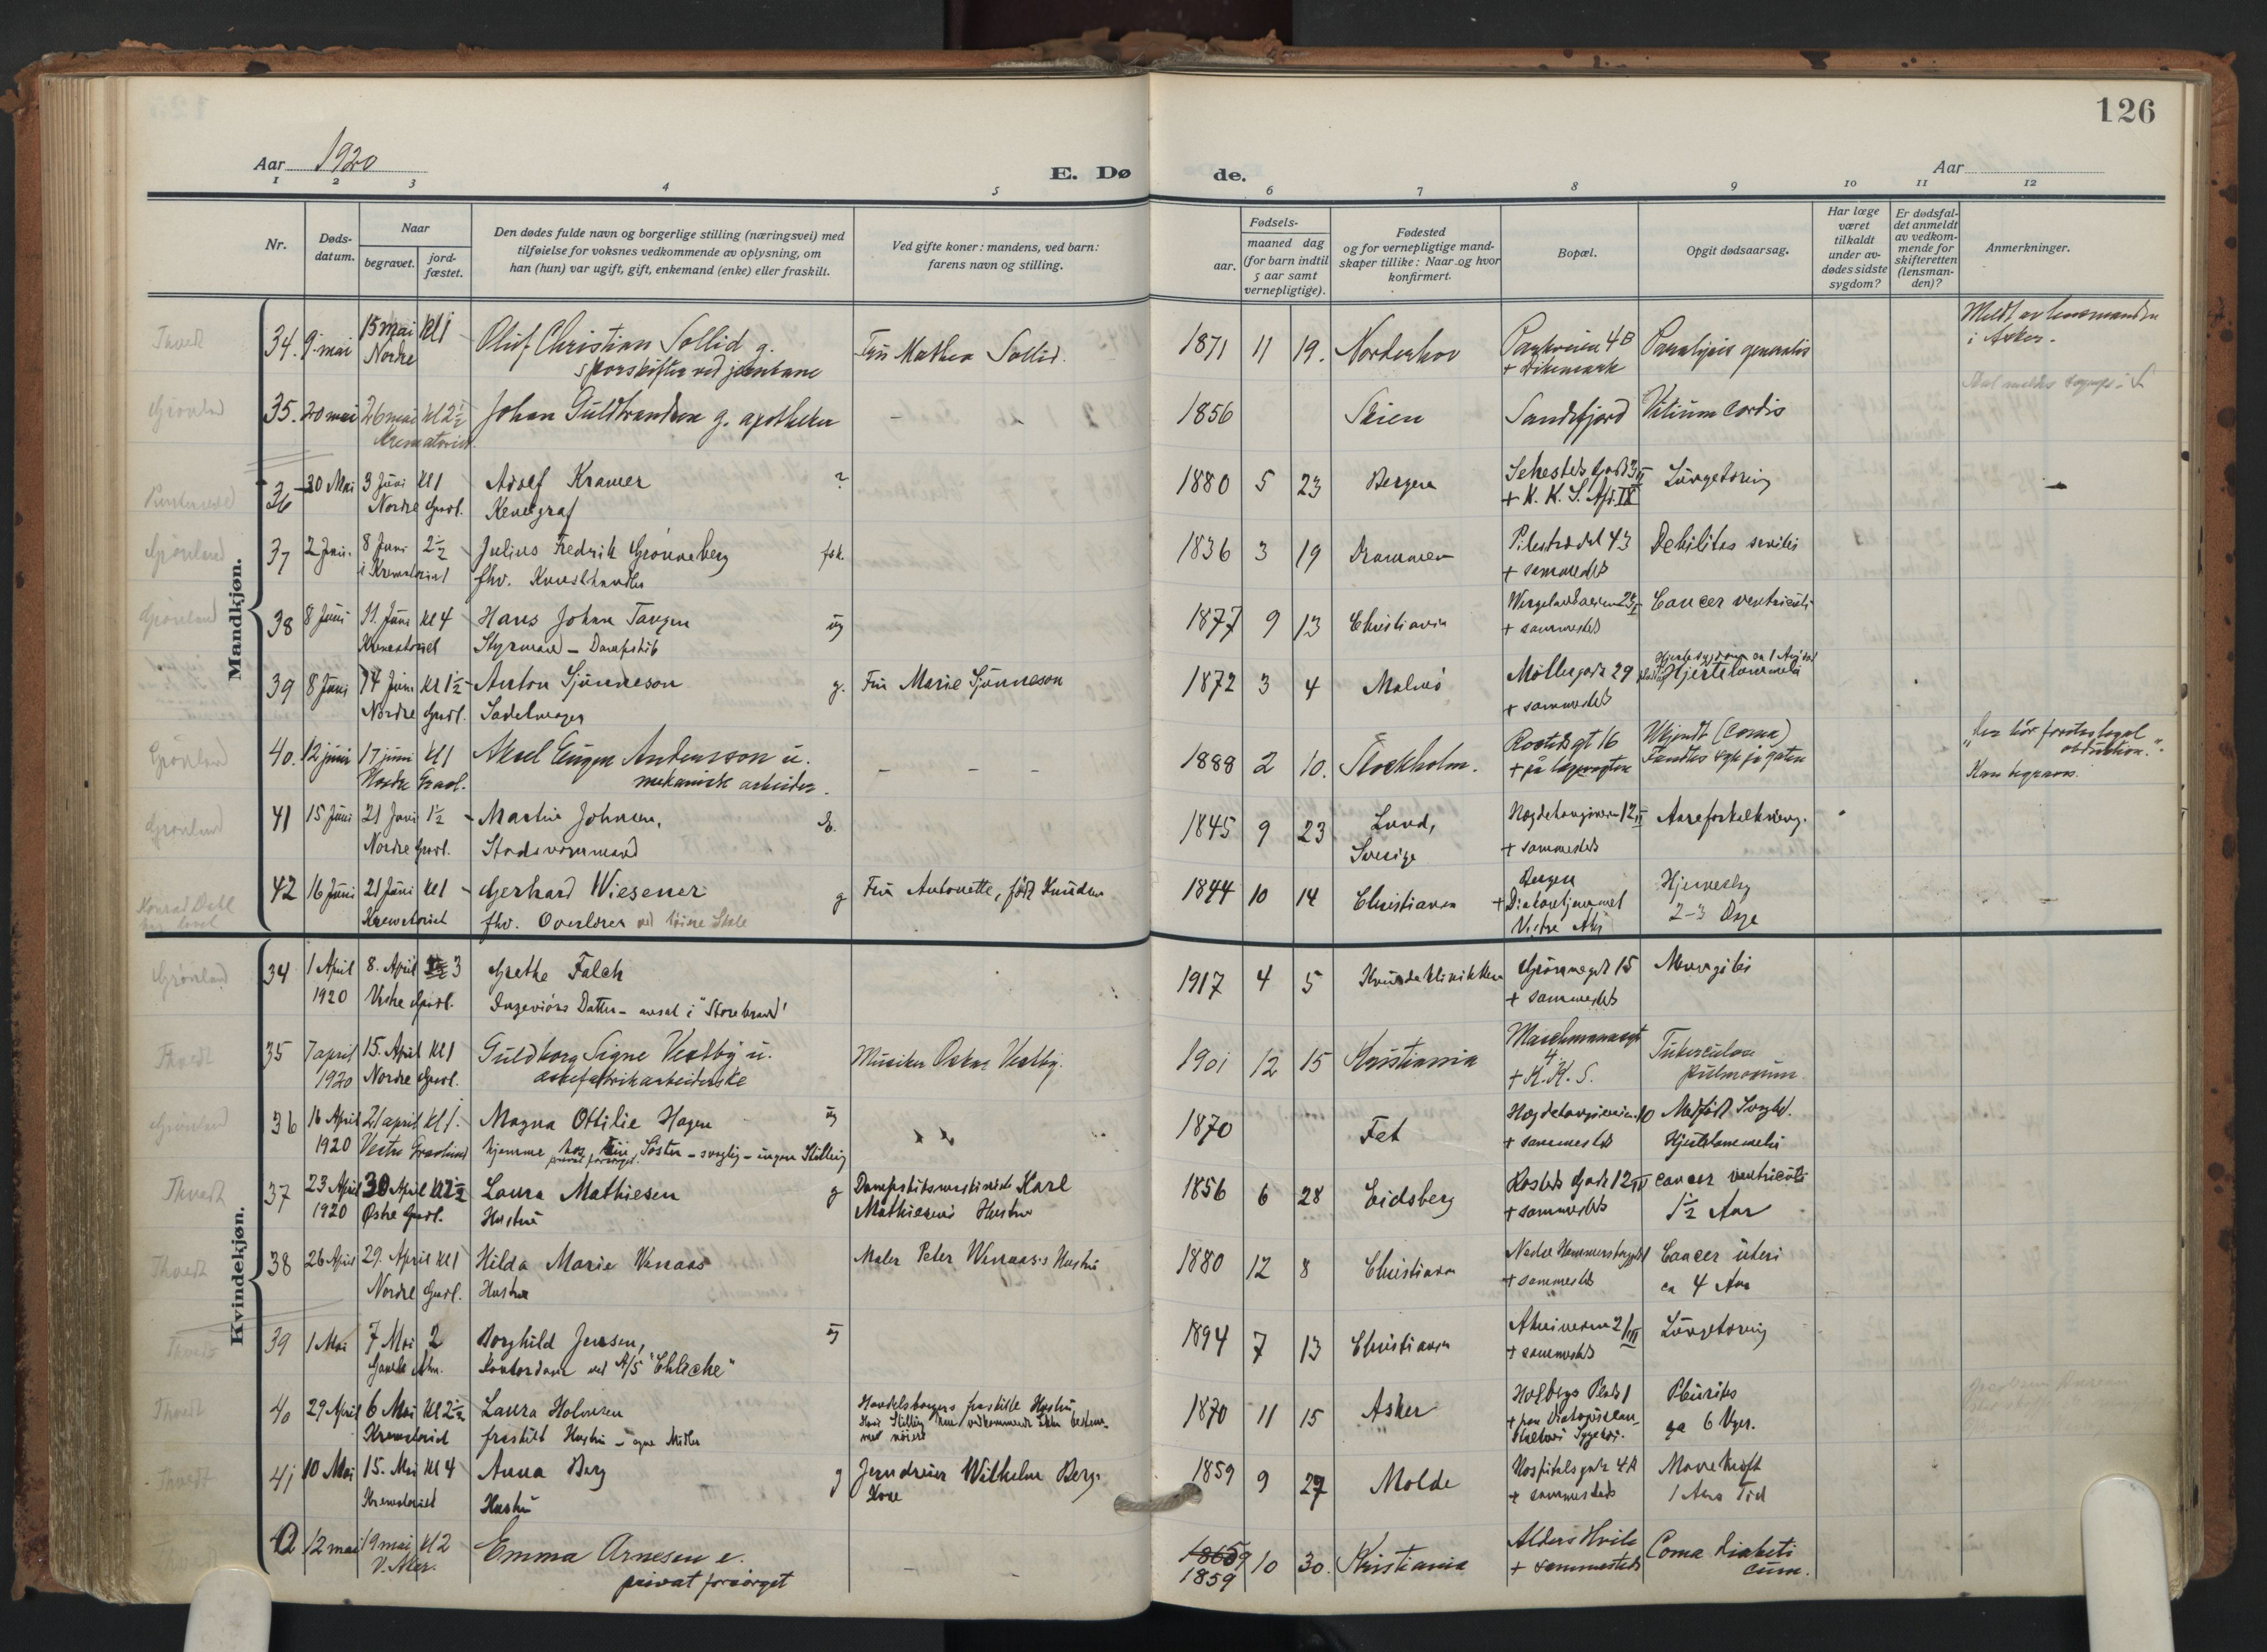 126
Aar 1920
E. Dø
de.
Aar
1 2 3 4 5 6 7 8 9 10 11 12
Nr.
Døds-
datum.
Naar
begravet.
jord-
fæstet.
Den dødes fulde navn og borgerlige stilling (næringsvei) med
tilføielse for voksnes vedkommende av oplysning, om
han (hun) var ugift, gift, enkemand (enke) eller fraskilt.
Ved gifte koner: mandens, ved barn:
farens navn og stilling.
Fødsels-
aar.
maaned dag
(for barn indtil
5 aar samt
vernepligtige).
Fødested
og for vernepligtige mand-
skaper tillike: Naar og hvor
konfirmert.
Bopæl.
Opgit dødsaarsag.
Har læge
været
tilkaldt
under av-
dødes sidste
sygdom?
Er dødsfal-
det anmeldt
av vedkom-
mende for
skifteretten
(lensman-
den)?
Anmerkninger.
Mandkjøn.
Thvedt 34. 9. mai 15 mai kl 1 Oluf Christian Sollid g. Fru Mathea Sollid. 1871 11 19. Norderhov Parkveien 4B Paralysis generalis Meldt av lensmanden
Nordre sporskifter ved jernbane + Dikemark i Asker.
Grönland 35. 20 mai 26 mai kl 2½ Johan Guldbrandsen g. apotheker - - 1856 Skien Sandefjord Vitium Cordis
Krematoriet.
36 30 Mai 3 Juni Kl 1 Adolf Kramer ? 1880 5 23 Bergen Sehesteds Gade 3 II Lungetæring
Nordre Gravl. + K. K. S. Afd. IX
Grönland 37 2 Juni 8 Juni 2½ Julius Fredrik Grønneberg fsk. 1836 3 19 Drammen Pilestrædet 43 Debilitas senilis
i Krematoriet fhv. Kunsthandler + sammesteds
Grönland 38 8 Juni 11. Juni Kl 4 Hans Johan Tangen ug 1877 9 13 Christiania Cancer ventriculi
Krematoriet Styrmand - Dampskib + sammesteds
39 8 Juni 14 Juni Kl 1½ Anton Sjunneson g. Fru Marie Sjunneson 1872 3 4 Malmö Møllergade 29 Hjertelammelse
Nordre Gravl. Sadelmager + sammesteds
Grönland 40. 12 juni 17 juni kl 1 Aksel Eugen Andersson u. - - - 1888 2 10. Stockholm. Rosteds gt 16 Ukjendt (Coma)
Nordre Gravl. mekanisk arbeider. + på lægevagten Fandtes syk på gaten Kan begraves.
Grönland 41 15 Juni 21 Juni 1½ Martin Johnsen, E. 1845 9 23 Lund, Hægdehaugsveien 12 II Aareforkalkning.
Nordre Gravl. Stadsvognmand Sverige + sammesteds
Konrad Dahl 42 16 Juni 21 Juni kl 1 Gerhard Wiesener g Fru Antonette, født Knudsen 1844 10 14 Christiania Bergen
Krematoriet fhv. Overlærer + Diakonhjemmet 2-3 Dage
Vestre Aker
Kvindekjøn.
Grönland 34 1 April 8. April 3 Grethe Falch 1917 4 5 Kvindeklinikken Grønnegt 15 Meningitis
1920 Vestre Gravl. Ingeniørs Datter - ansat i "Storebrand" + sammesteds
Thvedt 35 7 april 15. April Kl 1 Guldborg Signe Vestby u. Musiker Oskar Vestby. 1901 12 15 Kristiania Marchmannsgt Tuberculose
1920 Nordre Gravl. 4 pulmonum.
+ K. K. S.
Grönland 36 16 April 21 april Kl 1. Magna Ottilie Hagen ug 1870 Fet Hægdehaugsveien 10 Medfødt Svaghed.
1920 Vestre Gravlund hjemme hos sin Søster - svagelig - ingen Stilling + sammesteds Hjertelammelse
privat forsørget.
Thvedt 37 23 April 30 April Kl 2½ Laura Mathiesen g Dampskibsmaskinist Karl 1856 6 28 Eidsberg Rosteds Gade 12 III cancer ventriculi
1920 Østre Gravl. Hustru Mathiesens Hustru + sammesteds 1½ Aar
Thvedt 38 26 April 29. April Kl 1 Hilda Marie Wenaas Maler Peter Wenaas's Hustru 1880 12 8 Christiania Cancer uteri
Nordre Gravl. Hustru + sammesteds ca 4 Aar
Thvedt 39 1 Mai 7 Mai 2 Borghild Jensen, ug 1894 7 13 Christiania Akersveien 21 III Lungetæring
Gamle Aker. Kontordame ved A/S "Ehliche" + sammesteds
Thvedt 40 29 April 6 Mai Kl 2½ Laura Holmsen fraskilte Hustru 1870 11 15 Asker Holbergs Plads 1 Pleuritis
Krematoriet fraskilt Hustru - egne Midler ca 6 Uger.
Thvedt 41 10 Mai 15. Mai Kl 4 Anna Berg g Jerndreier Wilhelm Bergs 1859 9 27 Molde Hospitalsgate 4A Mavekræft
Krematoriet Hustru Kone + sammesteds 1 Aars Tid
Thvedt 42 12 mai 19 mai kl 2 Emma Arnesen e. - - 1859 10 30. Kristiania Alders Hvile Coma diabeti
V. Aker. privat forsørget 1859 + sammesteds cum.